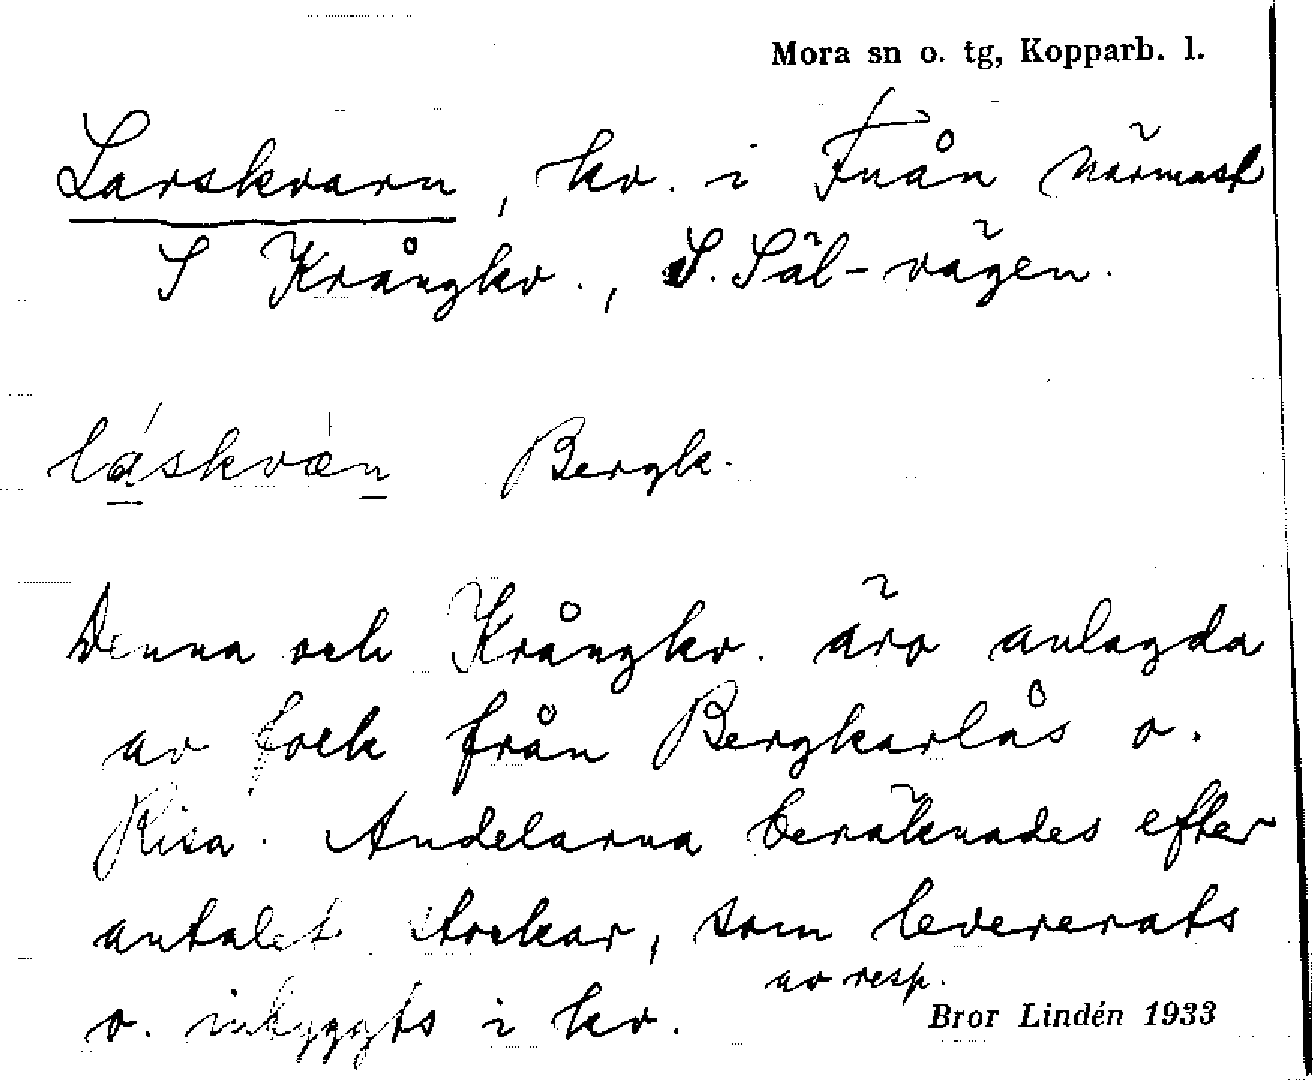 Mora sn o. tg, Kopparb. l.
Larskvarn, kv. i Fnån närmast
S Krångkv., S. Säl-vägen.
láskvæ̀n Bergk.
Denna och Krångkv. äro anlagda
av folk från Bergkarlås o.
Risa. Andelarna beräknades efter
antalet stockar, som levererats
av resp.
o. inbyggts i kv.
Bror Lindén 1933